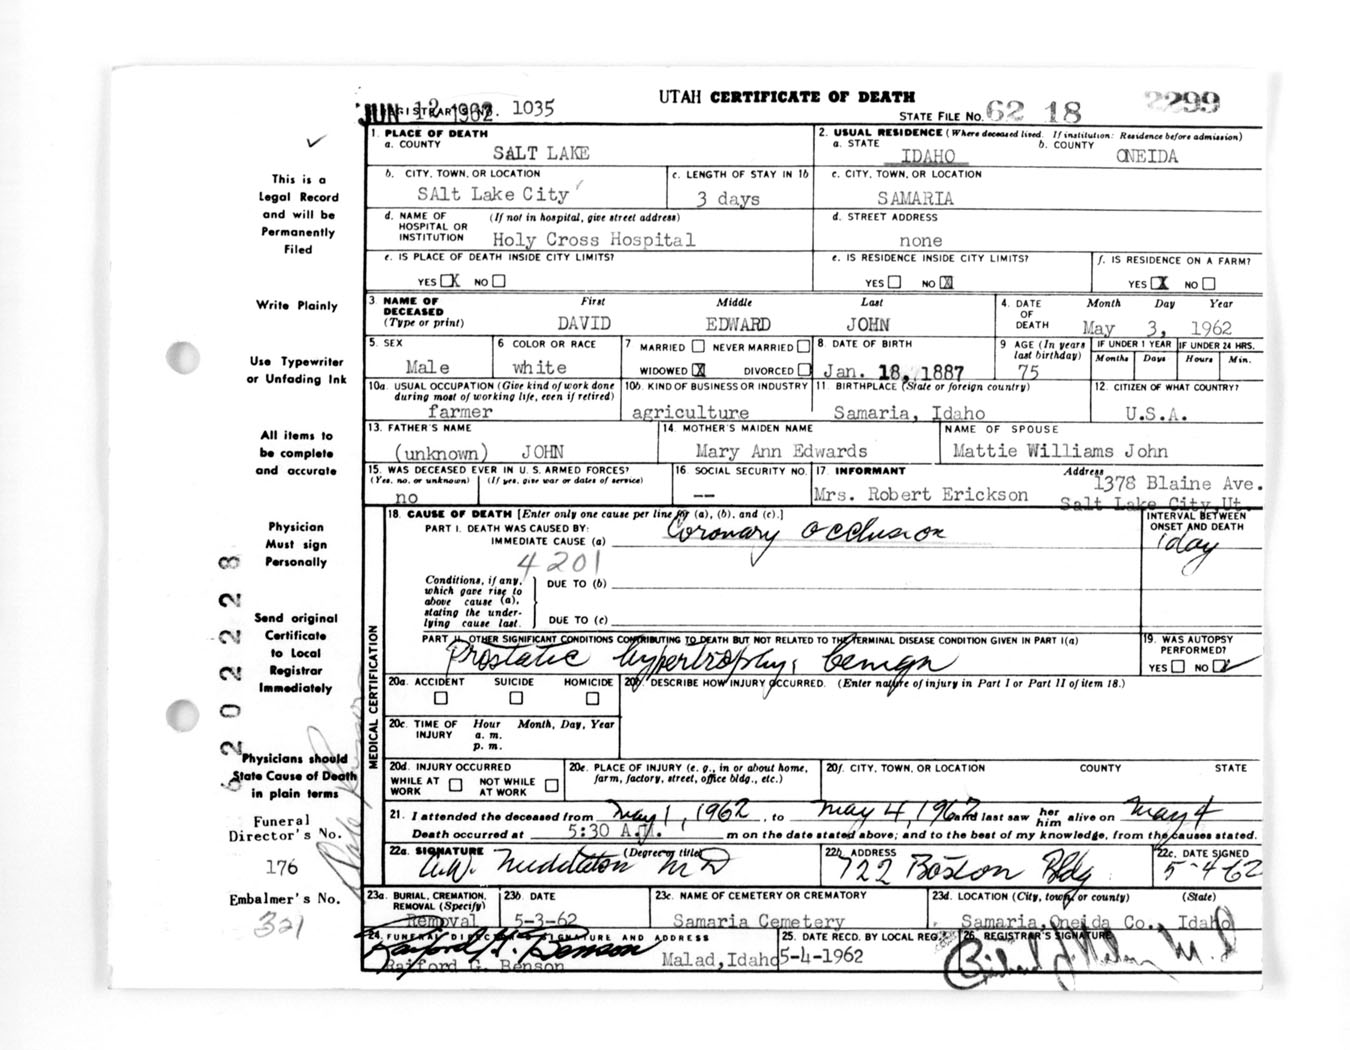 UTAH CERTIFICATE OF DEATH
JUN 12 1962 REGISTRAR'S NO. 1035
STATE FILE NO. 62 18 2299
1. PLACE OF DEATH
a. COUNTY SALT LAKE
2. USUAL RESIDENCE (Where deceased lived. If institution: Residence before admission)
a. STATE IDAHO b. COUNTY ONEIDA
This is a
Legal Record
and will be
Permanently
Filed
b. CITY, TOWN, OR LOCATION SAlt Lake City
c. LENGTH OF STAY IN 1b 3 days
c. CITY, TOWN, OR LOCATION SAMARIA
d. NAME OF HOSPITAL OR INSTITUTION (If not in hospital, give street address) Holy Cross Hospital
d. STREET ADDRESS none
e. IS PLACE OF DEATH INSIDE CITY LIMITS? YES X NO
e. IS RESIDENCE INSIDE CITY LIMITS? YES NO X
f. IS RESIDENCE ON A FARM? YES X NO
Write Plainly
3 NAME OF DECEASED (Type or print) First Middle Last
DAVID EDWARD JOHN
4. DATE OF DEATH Month Day Year
May 3, 1962
Use Typewriter
or Unfading Ink
5. SEX Male
6 COLOR OR RACE white
7 MARRIED NEVER MARRIED
WIDOWED X DIVORCED
8 DATE OF BIRTH Jan. 18, 1887
9 AGE (In years last birthday) 75
IF UNDER 1 YEAR Months Days
IF UNDER 24 HRS. Hours Min.
10a. USUAL OCCUPATION (Give kind of work done during most of working life, even if retired) farmer
10b. KIND OF BUSINESS OR INDUSTRY agriculture
11. BIRTHPLACE (State or foreign country) Samaria, Idaho
12. CITIZEN OF WHAT COUNTRY? U.S.A.
All items to
be complete
and accurate
13. FATHER'S NAME (unknown) JOHN
14. MOTHER'S MAIDEN NAME Mary Ann Edwards
NAME OF SPOUSE Mattie Williams John
15. WAS DECEASED EVER IN U.S. ARMED FORCES?
(Yes, no, or unknown) (If yes, give war or dates of service)
no
16. SOCIAL SECURITY NO. --
17. INFORMANT Mrs. Robert Erickson
Address 1378 Blaine Ave.
Salt Lake City, Ut.
Physician
Must sign
Personally
MEDICAL CERTIFICATION
18. CAUSE OF DEATH [Enter only one cause per line for (a), (b), and (c).]
PART I. DEATH WAS CAUSED BY:
IMMEDIATE CAUSE (a) Coronary occlusion
INTERVAL BETWEEN ONSET AND DEATH
1 day
4201
Conditions, if any, which gave rise to above cause (a), stating the underlying cause last.
DUE TO (b)
DUE TO (c)
Send original
Certificate
to Local
Registrar
Immediately
PART II. OTHER SIGNIFICANT CONDITIONS CONTRIBUTING TO DEATH BUT NOT RELATED TO THE TERMINAL DISEASE CONDITION GIVEN IN PART I(a)
Prostatic hypertrophy, benign
19. WAS AUTOPSY PERFORMED?
YES NO
20a. ACCIDENT SUICIDE HOMICIDE
20b. DESCRIBE HOW INJURY OCCURRED. (Enter nature of injury in Part I or Part II of item 18.)
20c. TIME OF INJURY Hour Month, Day, Year
a. m.
p. m.
Physicians should
State Cause of Death
in plain terms
20d. INJURY OCCURRED
WHILE AT WORK NOT WHILE AT WORK
20e. PLACE OF INJURY (e. g., in or about home, farm, factory, street, office bldg., etc.)
20f. CITY, TOWN, OR LOCATION COUNTY STATE
21. I attended the deceased from May 1, 1962, to May 4, 1962 and last saw her him alive on May 4
Death occurred at 5:30 A.M. m on the date stated above; and to the best of my knowledge, from the causes stated.
Funeral
Director's No.
176
22a. SIGNATURE (Degree or title) M D
22b. ADDRESS 722 Boston Bldg
22c. DATE SIGNED 5-4-62
Embalmer's No.
321
23a. BURIAL, CREMATION, REMOVAL (Specify) Removal
23b. DATE 5-3-62
23c. NAME OF CEMETERY OR CREMATORY Samaria Cemetery
23d. LOCATION (City, town, or county) (State)
Samaria, Oneida Co. Idaho
24. FUNERAL DIRECTOR'S SIGNATURE AND ADDRESS
Raiford G. Benson Malad, Idaho
25. DATE RECD. BY LOCAL REG. 5-4-1962
26. REGISTRAR'S SIGNATURE